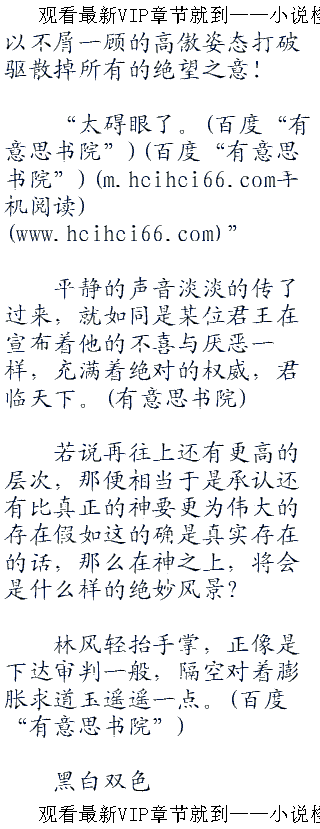 观看最新VIP章节就到——小说榜
以不屑一顾的高傲姿态打破
驱散掉所有的绝望之意！
“太碍眼了。(百度“有
意思书院”)(百度“有意思
书院”)(m.hcihci66.com手
机阅读)
(www.hcihci66.com)”
平静的声音淡淡的传了
过来，就如同是某位君王在
宣布着他的不喜与厌恶一
样，充满着绝对的权威，君
临天下。(有意思书院)
若说再往上还有更高的
层次，那便相当于是承认还
有比真正的神要更为伟大的
存在假如这的确是真实存在
的话，那么在神之上，将会
是什么样的绝妙风景？
林风轻抬手掌，正像是
下达审判一般，隔空对着膨
胀求道玉遥遥一点。(百度
“有意思书院”)
黑白双色
观看最新VIP章节就到——小说榜